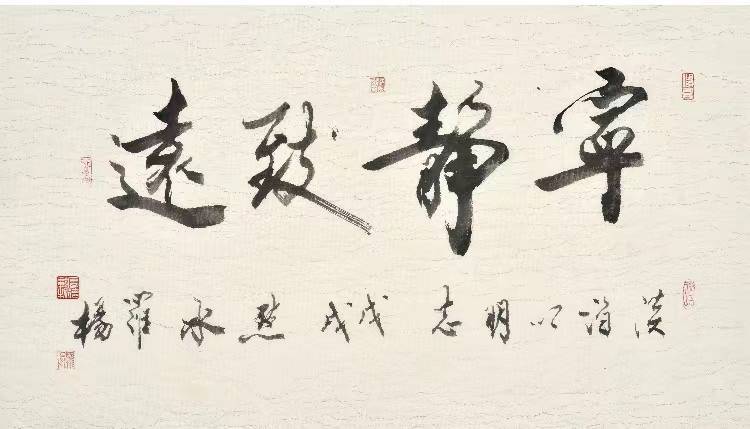 寧靜致遠
淡泊以明志戊戌羅楊